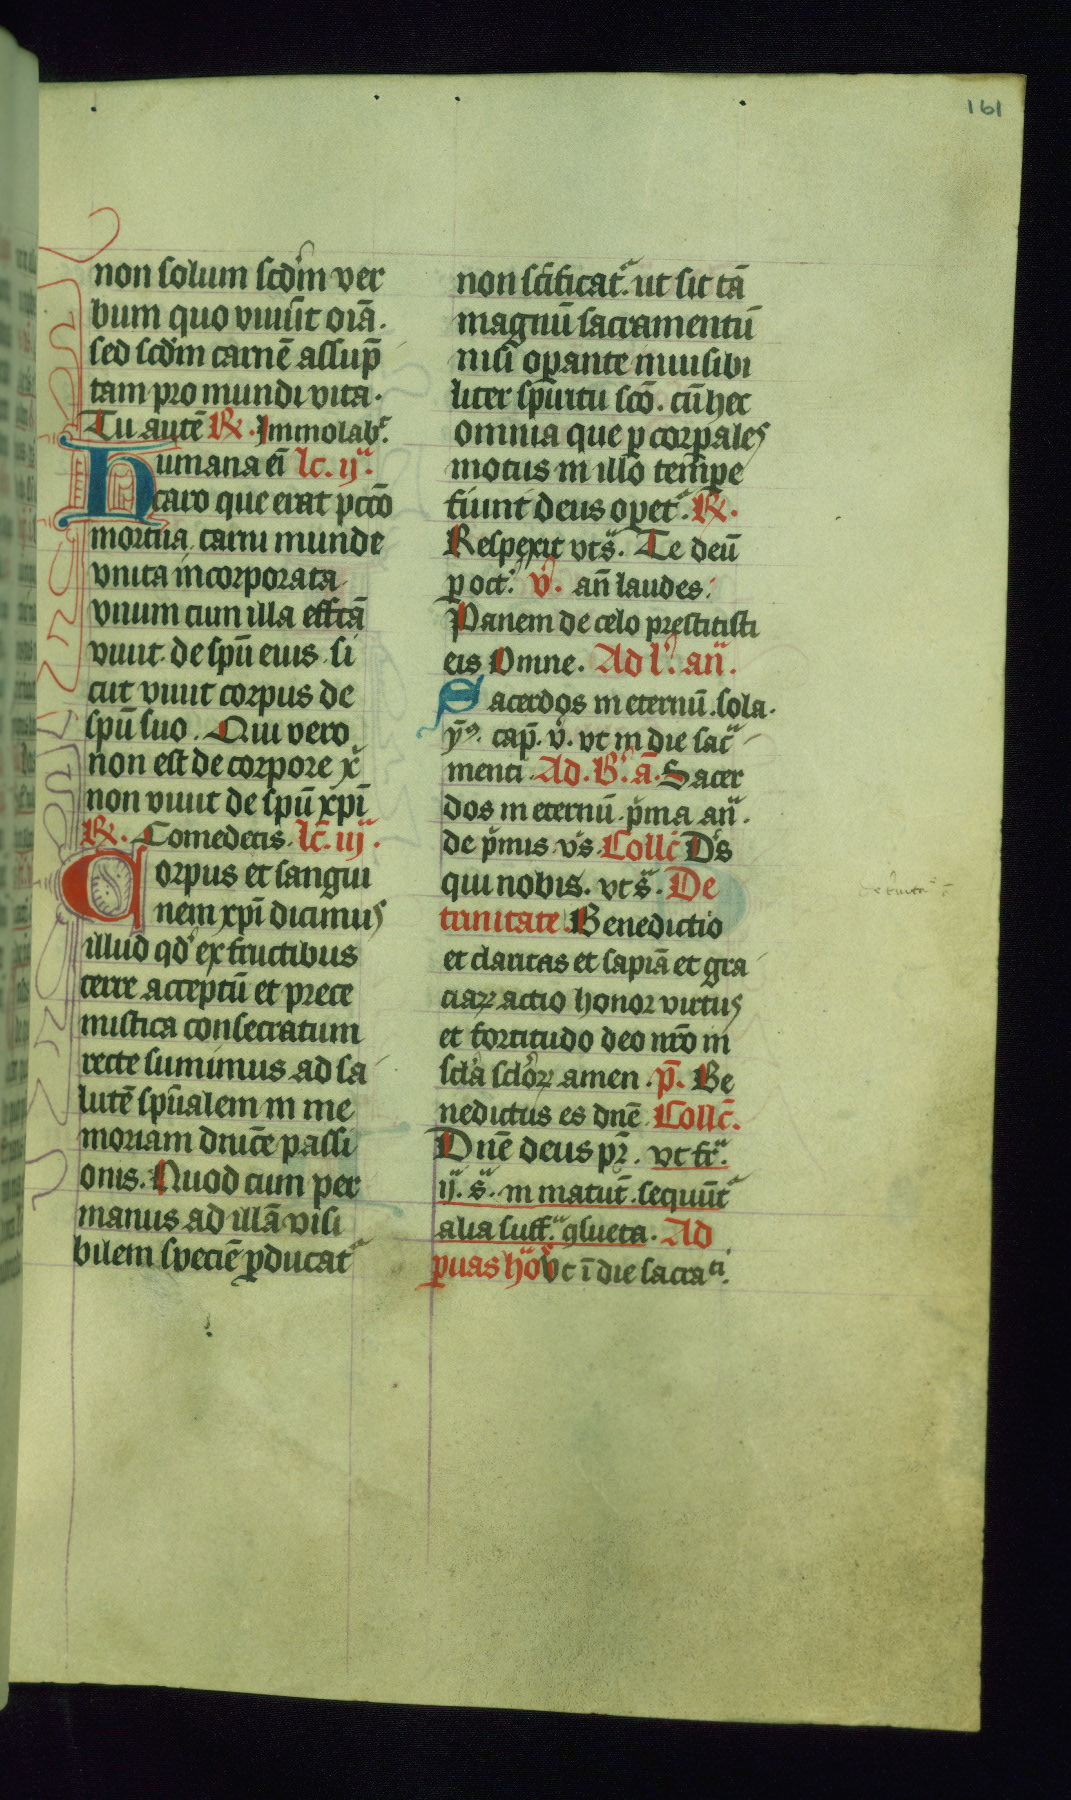 161
non solum scdm ver
bum quo viuūt oīa.
sed scdm carnē assūp
tam pro mundi vita.
Tu autē R. Immolabᵗ.
Humana eī lc. ijᵃ.
caro que erat pccō
mortua, carni munde
vnita incorporata
vnum cum illa effcā
viuit de spū eius si
cut viuit corpus de
spū suo. Qui vero
non est de corpore x̄
non viuit de spū xp̄i
R. Comedetis. lc̄. iijᵃ.
Corpus et sangui
nem xp̄i dicimus
illud qd' ex fructibus
terre acceptū et prece
mistica consecratum
recte sumimus ad sa
lutē sp̄ualem in me
moriam dnīce passi
onis. Quod cum per
manus ad illā visi
bilem speciē ꝓducatᵗ
non scīficatᵗ. ut sit tā
magnū sacramentū
nisi oꝑante inuisibi
liter spiritu scō. cū hec
omnia que ꝑ corꝑales
motus in illo tempe
fiunt deus opetᵗ. R.
Respexit vt sᵃ. Te deū
ꝑ oct. v̄. an̄ laudes.
Panem de celo prestitisti
eis Omne. Ad lᵃ. anᵃ.
Sacerdos in eternū. sola.
ȳ. cap̄. v̄. vt in die sac
menti. Ad. B. ā. Sacer
dos in eternū. pᵢma anᵃ.
de pᵢmis vs. Collc̄ Ds
qui nobis. vt sᵃ. De
trinitate Benedictio
et claritas et sapiā et gra
ciaꝝ actio honor virtus
et fortitudo deo nrō in
scla scloꝝ amen. p̄. Be
nedictus es dnē Collc̄.
Dnē deus pr̄. vt frᵃ.
ijᵃ. sᵃ. in matut̄. sequūtᵗ
alia suffᵃ. ꝯsueta. Ad
ꝑuas hoᵃ Vt ī die sacraᵗⁱ.